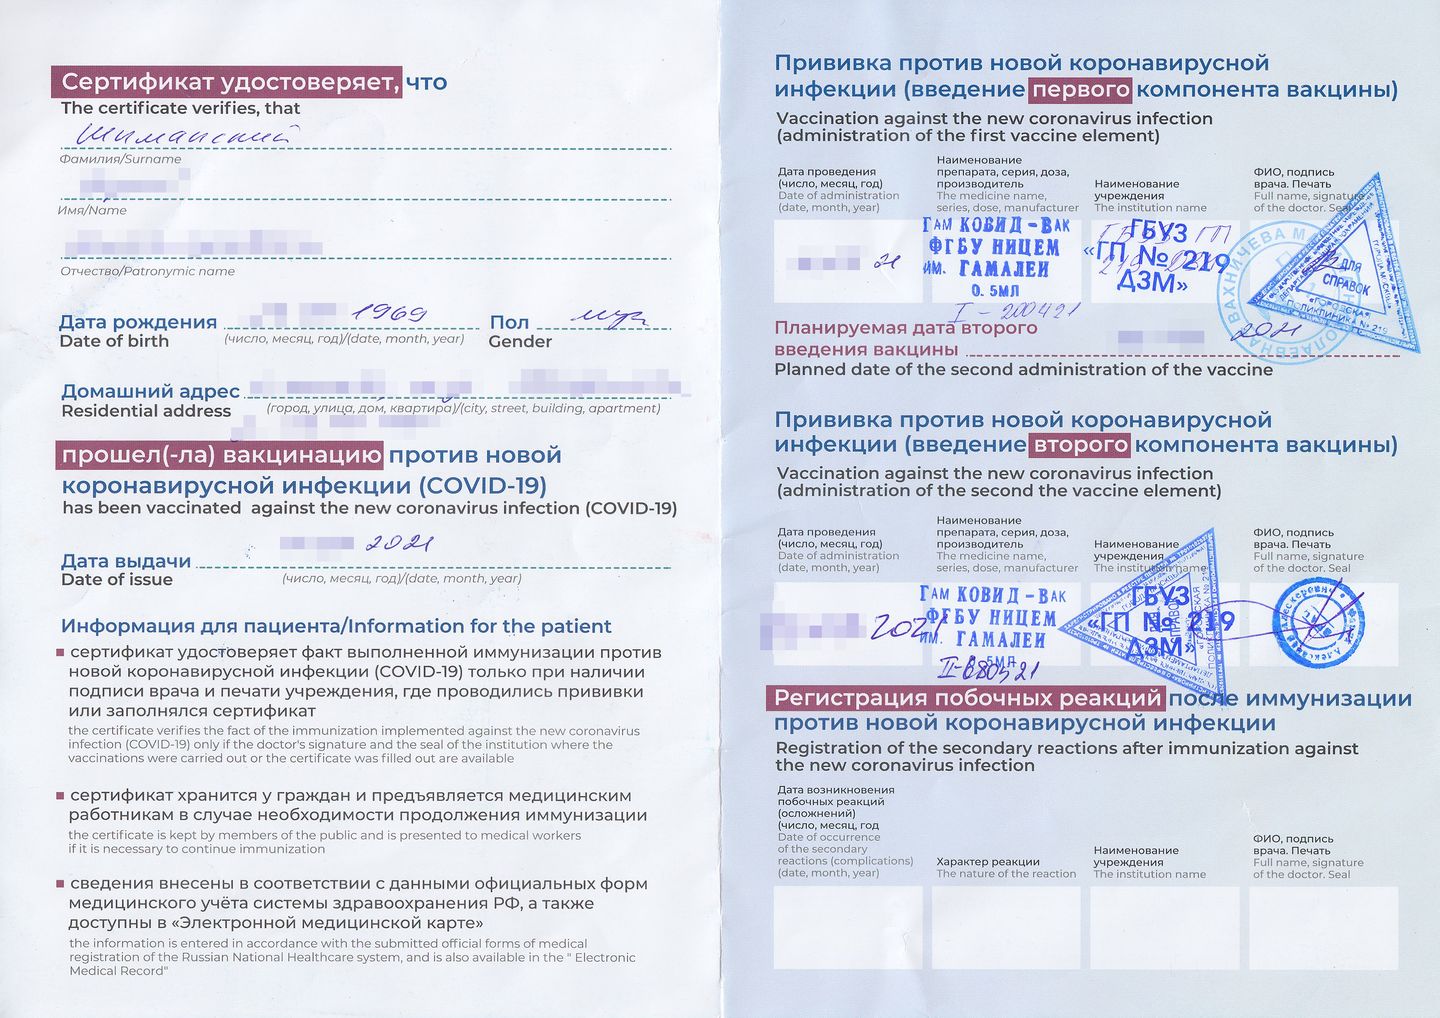 Сертификат удостоверяет, что
The certificate verifies, that
Шиманский
Фамилия/Surname
Имя/Name
Отчество/Patronymic name
Дата рождения 1969 Пол муж
Date of birth (число, месяц, год)/(date, month, year) Gender
Домашний адрес
Residential address (город, улица, дом, квартира)/(city, street, building, apartment)
прошел(-ла) вакцинацию против новой
коронавирусной инфекции (COVID-19)
has been vaccinated against the new coronavirus infection (COVID-19)
Дата выдачи 2021
Date of issue (число, месяц, год)/(date, month, year)
Информация для пациента/Information for the patient
сертификат удостоверяет факт выполненной иммунизации против
новой коронавирусной инфекции (COVID-19) только при наличии
подписи врача и печати учреждения, где проводились прививки
или заполнялся сертификат
the certificate verifies the fact of the immunization implemented against the new coronavirus
infection (COVID-19) only if the doctor's signature and the seal of the institution where the
vaccinations were carried out or the certificate was filled out are available
сертификат хранится у граждан и предъявляется медицинским
работникам в случае необходимости продолжения иммунизации
the certificate is kept by members of the public and is presented to medical workers
if it is necessary to continue immunization
сведения внесены в соответствии с данными официальных форм
медицинского учёта системы здравоохранения РФ, а также
доступны в «Электронной медицинской карте»
the information is entered in accordance with the submitted official forms of medical
registration of the Russian National Healthcare system, and is also available in the " Electronic
Medical Record"
Прививка против новой коронавирусной
инфекции (введение первого компонента вакцины)
Vaccination against the new coronavirus infection
(administration of the first vaccine element)
Дата проведения
(число, месяц, год)
Date of administration
(date, month, year)
Наименование
препарата, серия, доза,
производитель
The medicine name,
series, dose, manufacturer
Наименование
учреждения
The institution name
ФИО, подпись
врача. Печать
Full name, signature
of the doctor. Seal
21
Гам КОВИД-Вак
ФГБУ НИЦЕМ
им. ГАМАЛЕИ
0.5мл
I - 200421
ГБУЗ
«ГП № 219
ДЗМ»
ДЛЯ
СПРАВОК
Планируемая дата второго
введения вакцины 2021
Planned date of the second administration of the vaccine
Прививка против новой коронавирусной
инфекции (введение второго компонента вакцины)
Vaccination against the new coronavirus infection
(administration of the second the vaccine element)
Дата проведения
(число, месяц, год)
Date of administration
(date, month, year)
Наименование
препарата, серия, доза,
производитель
The medicine name,
series, dose, manufacturer
Наименование
учреждения
The institution name
ФИО, подпись
врача. Печать
Full name, signature
of the doctor. Seal
Гам КОВИД-Вак
ФГБУ НИЦЕМ
им. ГАМАЛЕИ
ГБУЗ
«ГП № 219
ДЗМ»
Регистрация побочных реакций после иммунизации
против новой коронавирусной инфекции
Registration of the secondary reactions after immunization against
the new coronavirus infection
Дата возникновения
побочных реакций
(осложнений)
(число, месяц, год
Date of occurrence
of the secondary
reactions (complications)
(date, month, year)
Характер реакции
The nature of the reaction
Наименование
учреждения
The institution name
ФИО, подпись
врача. Печать
Full name, signature
of the doctor. Seal